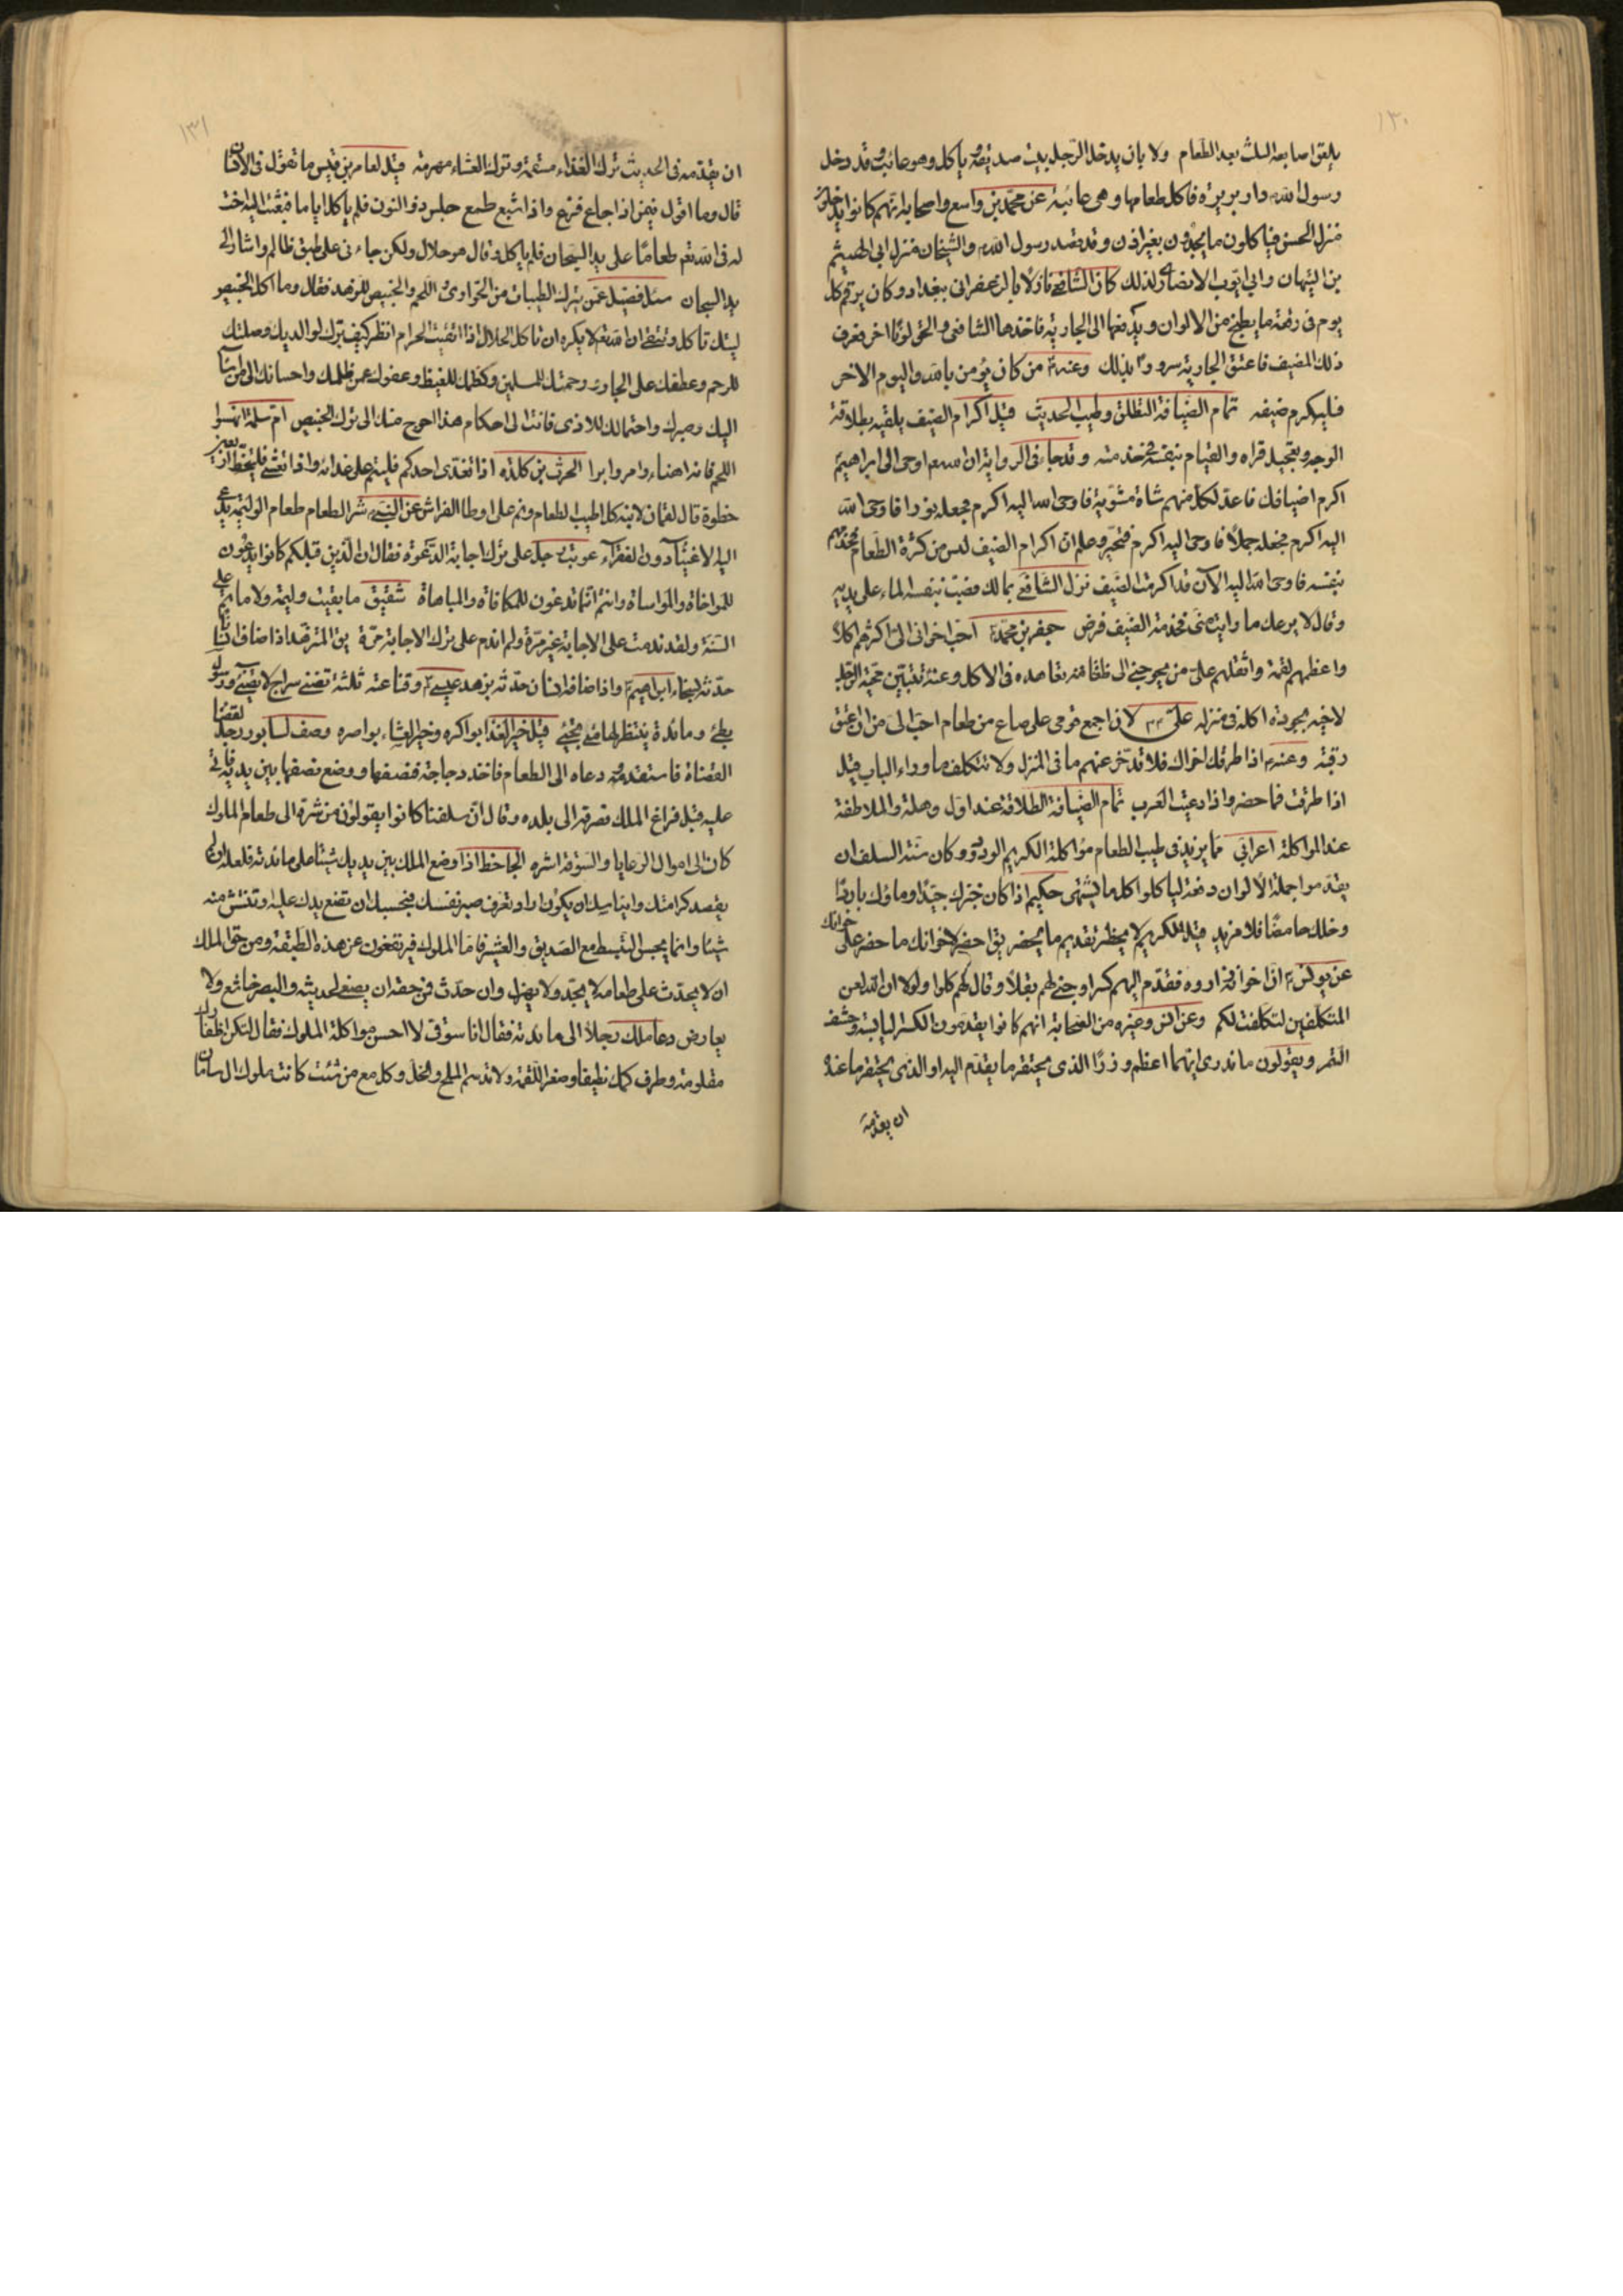 ١٣٠
يلعق اصابعه الثلث بعد الطعام ولا باس ان يدخل الرجل بيت صديقه وياكل وهو غائب وقد دخل
رسول الله دار بريرة فاكل طعامها وهي غائبة عن محمد بن واسع واصحابه انهم كانوا يدخلون
منزل الحسن فياكلون ما يجدون بغير اذن وقد قصد رسول الله والشيخان منزل ابي الهيثم
بن التيهان وابي ايوب الانصاري لذلك كان الشافعي نازلا بالزعفراني ببغداد وكان يرقم كل
يوم في رقعة ما يطبخ من الالوان ويدفعها الى الجارية فاخذها الشافعي والحق لونا اخر فعرف
ذلك المضيف فاعتق الجارية سرورا بذلك وعنه من كان يؤمن بالله واليوم الاخر
فليكرم ضيفه تمام الضيافة التطلق وطيب الحديث قيل اكرام الضيف يلقيه بطلاقة
الوجه وتعجيل قراه والقيام بنفسه في خدمته وقد جاء في الرواية ان الله اوحى الى ابراهيم
اكرم اضيافك فاعد لكل منهم شاة مشوية فاوحى الله اليه اكرم فجعله ثورا فاوحى الله
اليه اكرم فجعله جملا فاوحى اليه اكرم فتحير وعلم ان اكرام الضيف ليس من كثرة الطعام فخدمهم
بنفسه فاوحى الله اليه الآن قد اكرمت الضيف نزل الشافعي بمالك فصب بنفسه الماء على يديه
وقال لا يرعك ما رايت مني فخدمة الضيف فرض جعفر بن محمد احب اخواني الي اكثرهم اكلا
واعظمهم لقمة واثقلهم علي من يحوجني الى تعاهده في الاكل وعنه تتبين محبة الرجل
لاخيه بجودة اكله في منزله علي لان اجمع قومي على صاع من طعام احب الي من ان اعتق
رقبة وعنه اذا طرقك اخوانك فلا تدخر عنهم ما في المنزل ولا تتكلف ما وراء الباب قيل
اذا طرقت فما حضر واذا دعيت العرب تمام الضيافة الطلاقة عند اول وهلة والملاطفة
عند المواكلة اعرابي مما يزيد في طيب الطعام مؤاكلة الكريم الودود وكان سنة السلف ان
يقدموا جملة الالوان دفعة لياكل كل ما يشتهي حكيم اذا كان خبزك جيدا وماؤك باردا
وخلك حامضا فلا مزيد قيل الكريم لا يحظر تقديم ما يحضر يقال احضر لاخوانك ما حضر على خوانك
عن يونس ان اخوانه زاروه فقدم اليهم كسرا وجنى لهم بقلا وقال لهم كلوا ولولا ان الله لعن
المتكلفين لتكلفت لكم وعن انس وغيره من الصحابة انهم كانوا يقدمون الكسر اليابسة وحشف
التمر ويقولون ما ندري ايهما اعظم وزرا الذي يحتقر ما يقدم اليه او الذي يحتقر ما عنده
ان يقدمه
١٣١
ان يقدمه في الحديث ترك الغداء مسقمة وترك العشاء مهرمة قيل لعامر بن قيس ما تقول في الانسان
قال وما اقول فيمن اذا جاع فزع واذا شبع طمع حبس ذو النون فلم ياكل اياما فبعثت اليه اخت
له في الله طعاما على يد السجان فلم ياكل وقال هو حلال ولكن جاءني على طبق ظالم واشار الى
يد السجان سئل فضيل عمن يترك الطيبات من الحوارى واللحم والخبيص للزهد فقال وما اكل الخبيص
ليتك تاكل وتتقي ان الله لا يكره ان تاكل الحلال اذا اتقيت الحرام انظر كيف برك لوالديك وصلتك
للرحم وعطفك على الجار ورحمتك للمسلمين وكظمك للغيظ وعفوك عمن ظلمك واحسانك الى من اساء
اليك وصبرك واحتمالك للاذى فانت الى احكام هذا احوج منك الى ترك الخبيص ام سلمة انهسوا
اللحم فانه اهناء وامرء وابرا الحرث بن كلدة اذا تغدى احدكم فلينم على غدائه واذا تعشى فليتخط اربعين
خطوة قال لقمان لابنه كل اطيب الطعام ونم على اوطا الفراش عن النبي شر الطعام طعام الوليمة يدعى
اليه الاغنياء دون الفقراء عوتب رجل على ترك اجابة الدعوة فقال ان الذين قبلكم كانوا يدعون
للمواخاة والمواساة وانتم انما تدعون للمكافاة والمباهاة شقيق ما بقيت وليمة ولا ماتم على
السنة ولقد ندمت على الاجابة غير مرة ولم اندم على ترك الاجابة مرة المتزهد اذا اضاف انسانا
حدثه بسخاء ابراهيم واذا اضافه انسان حدثه بزهد عيسى وقناعته ثلثة تضني سراج لا يضيء ورسول
بطئ ومائدة ينتظر لها من يجئ قيل خير الغداء بواكره وخير العشاء بواصره وصف لسابور رجل لقضاء
القضاة فاستقدمه ودعاه الى الطعام فاخذ دجاجة فنصفها ووضع نصفها بين يديه فاتى
عليه قبل فراغ الملك فصرفه الى بلده وقال ان سلفنا كانوا يقولون من شره الى طعام الملوك
كان الى اموال الرعايا والسوقة اشره الجاحظ اذا وضع الملك بين يديك شيئا على مائدته فلعله ان لم
يقصد كرامتك وايناسك ان يكون اراد تعرف صبر نفسك فبحسبك ان تضع يدك عليه وتنتش منه
شيئا وانما يحسن التبسط مع الصديق والعشير فاما الملوك فيرتفعون عن هذه الطبقة ومن حق الملك
ان لا يحدث على طعامه لا بجد ولا بهزل وان حدث فمن حقه ان يصغى لحديثه والبصر خاشع ولا
يعارض دعا ملك رجلا الى مائدته فقال انا سوقي لا احسن مواكلة الملوك فقال لتكن اظفارك
مقلومة وطرف كمك نظيفا وصغر اللقمة ولا تدسم الملح والخل وكل مع من شئت كانت ملوك ال ساسان